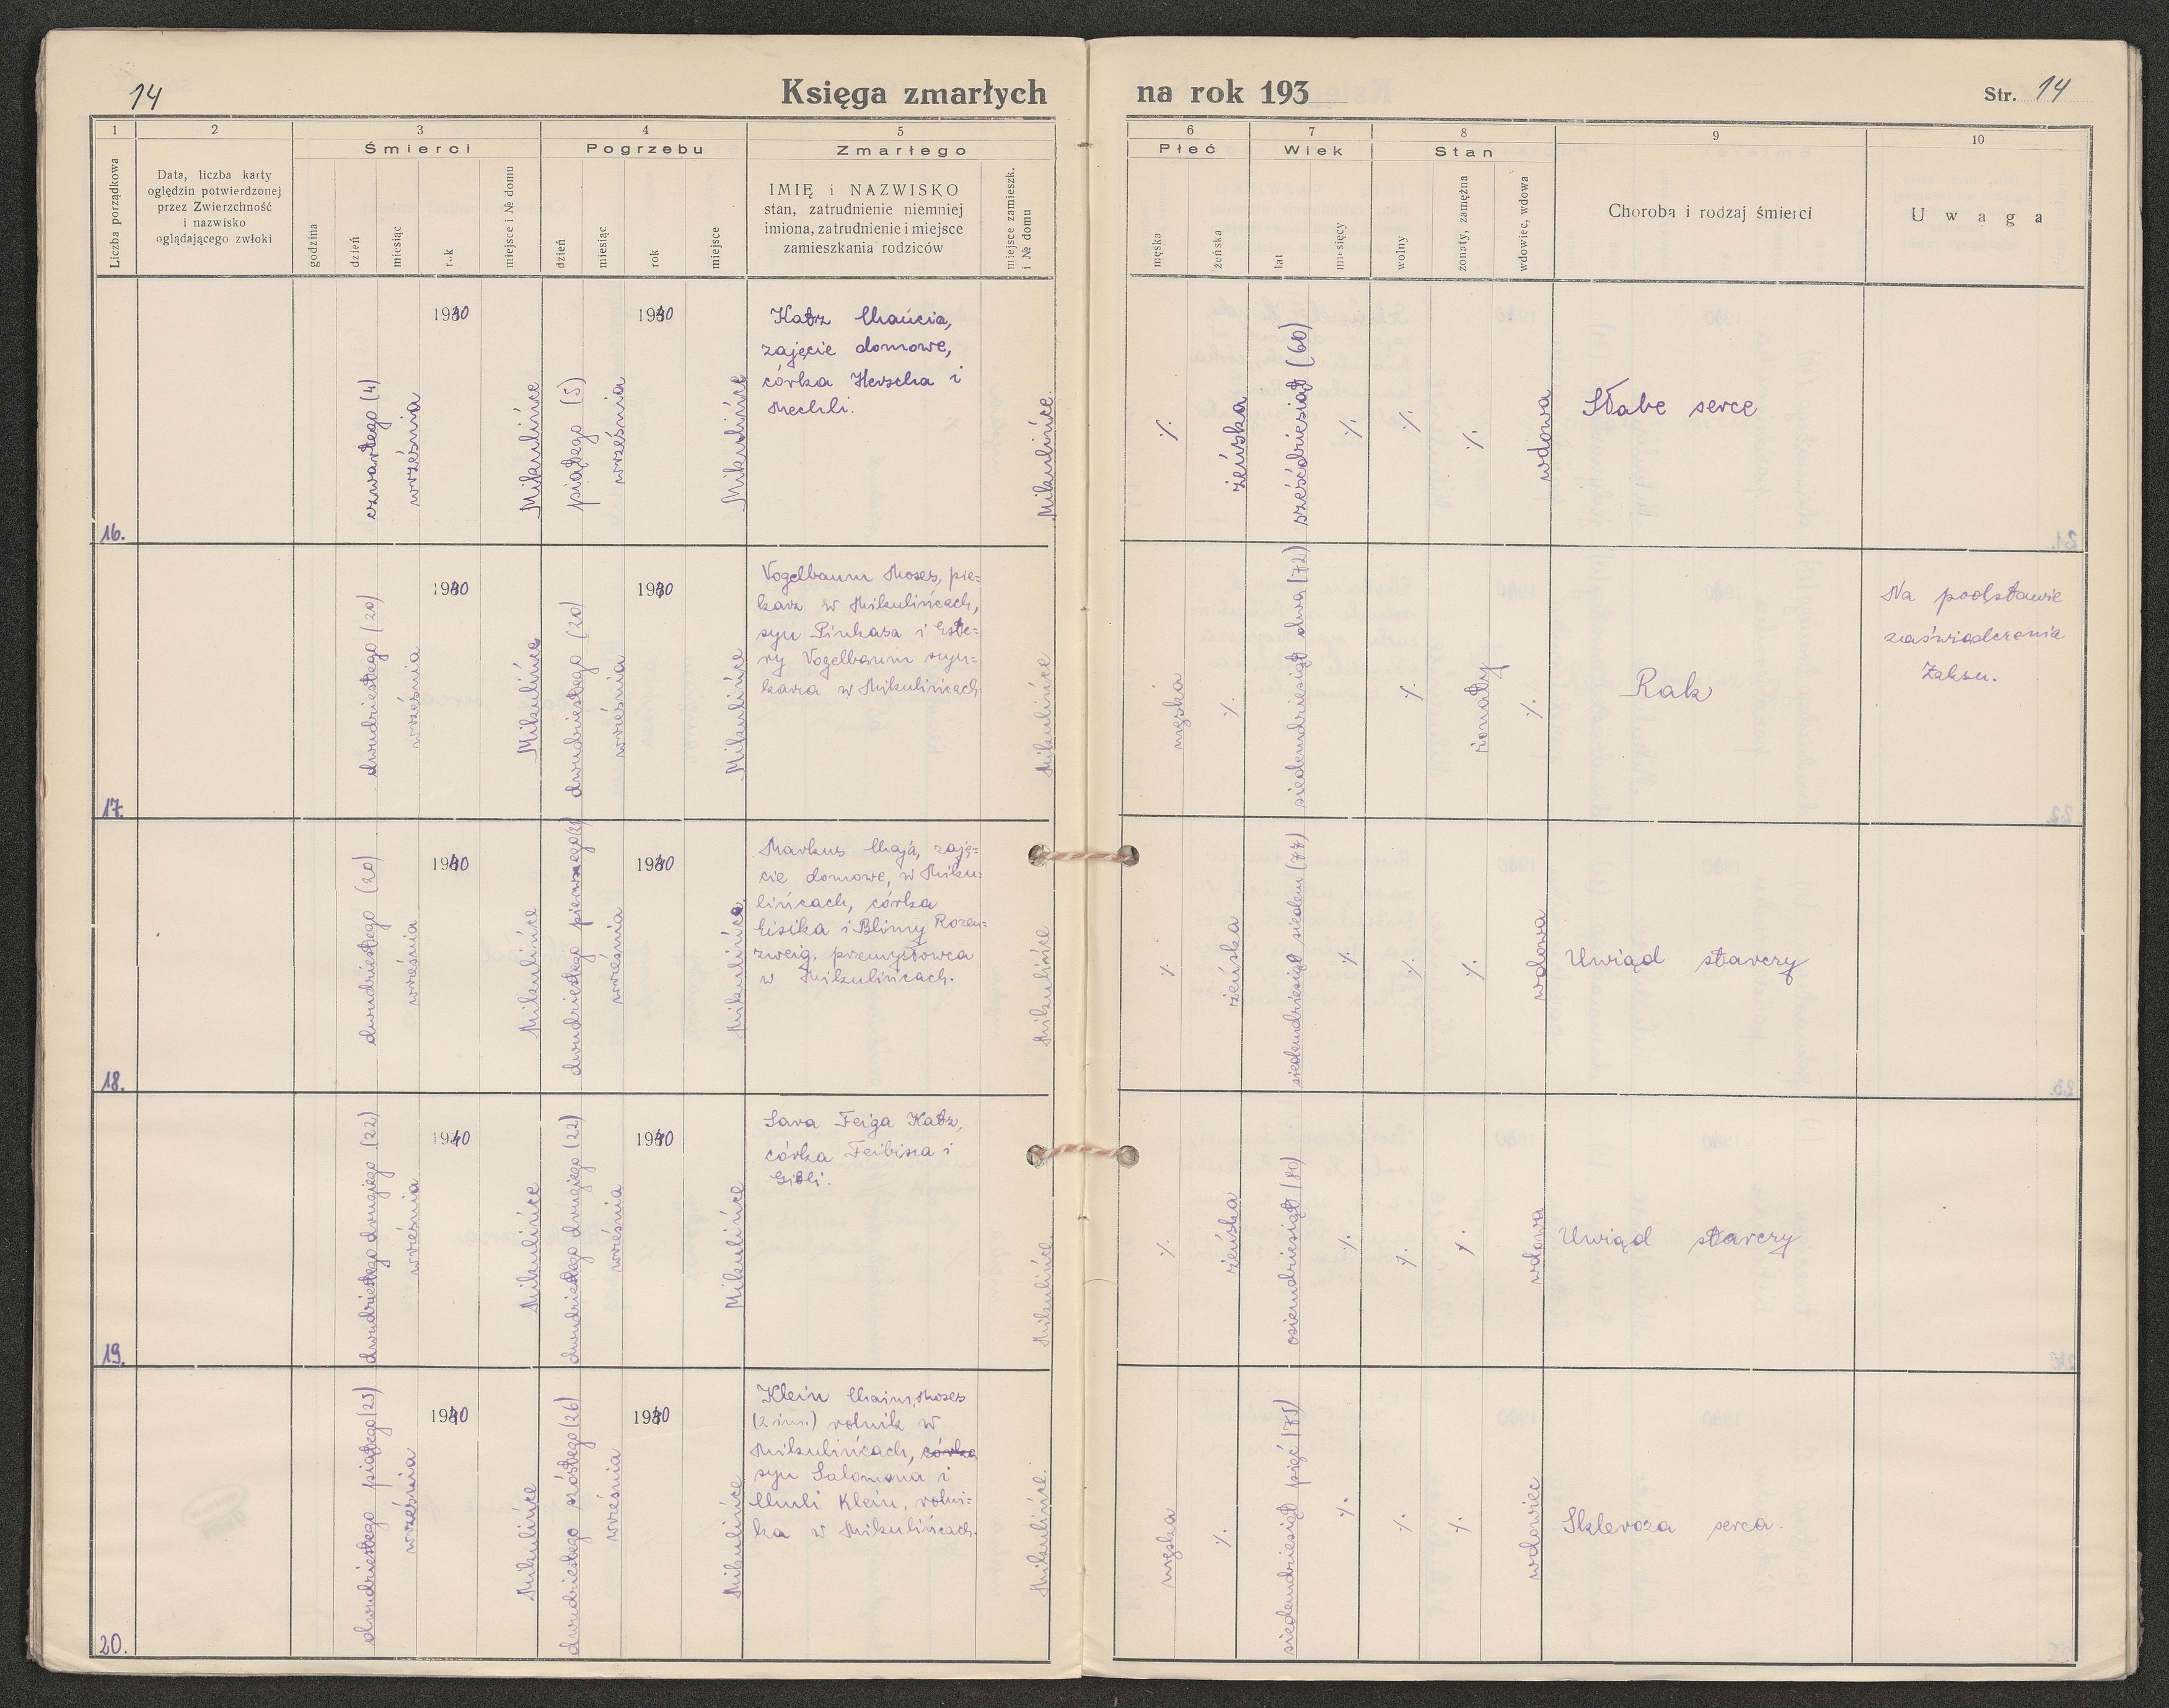 14
Księga zmarłych na rok 193
Str. 14
1 2 3 4 5 6 7 8 9 10
Liczba porządkowa
Data, liczba karty
oględzin potwierdzonej
przez Zwierzchność
i nazwisko
oglądającego zwłoki
Śmierci
godzina
dzień
miesiąc
rok
miejsce i № domu
Pogrzebu
dzień
miesiąc
rok
miejsce
Zmarłego
IMIĘ i NAZWISKO
stan, zatrudnienie niemniej
imiona, zatrudnienie i miejsce
zamieszkania rodziców
miejsce zamieszk.
i № domu
Płeć
męska
żeńska
Wiek
lat
miesięcy
Stan
wolny
żonaty, zamężna
wdowiec, wdowa
Choroba i rodzaj śmierci
Uwaga
16.
czwartego (4)
września
1940
Mikulińce
piątego (5)
września
1940
Mikulińce
Katz Chańcia,
zajęcie domowe,
córka Herscha i
Mechli.
Mikulińce.
·/.
żeńska
sześćdziesiąt (60)
·/.
·/.
·/.
wdowa
Słabe serce
17.
dwudziestego (20)
września
1940
Mikulińce
dwudziestego (20)
września
1940
Mikulińce
Vogelbaum Moses, pie=
karz w Mikulińcach,
syn Pinkasa i Este=
ry Vogelbaum szyn=
karza w Mikulińcach.
Mikulińce
męska
·/.
siedemdziesiąt dwa (72)
·/.
żonaty
·/.
Rak
Na podstawie
zaświadczenia
18.
dwudziestego (20)
września
1940
Mikulińce
dwudziestego pierwszego (21)
września
1940
Mikulińce
Markus Chaja, zaję=
cie domowe, w Miku=
lińcach, córka
Eisika i Blimy Rozen=
zweig, przemysłowca
w Mikulińcach.
Mikulińce
·/.
żeńska
siedemdziesiąt siedem (77)
·/.
·/.
·/.
wdowa
Uwiąd starczy
19.
dwudziestego drugiego (22)
września
1940
Mikulińce
dwudziestego drugiego (22)
września
1940
Mikulińce
Sara Feiga Katz,
córka Feibisza i
Gitli.
Mikulińce.
·/.
żeńska
osiemdziesiąt (80)
·/.
·/.
·/.
wdowa
Uwiąd starczy
20.
dwudziestego piątego (25)
września
1940
Mikulińce
dwudziestego szóstego (26)
września
1940
Mikulińce
Klein Chaim, Moses
(2 im.) rolnik w
Mikulińcach, córka
syn Salomona i
Klein, rolni=
ka w Mikulińcach.
Mikulińce.
męska
·/.
siedemdziesiąt pięć (75)
·/.
·/.
·/.
wdowiec
Skleroza serca.